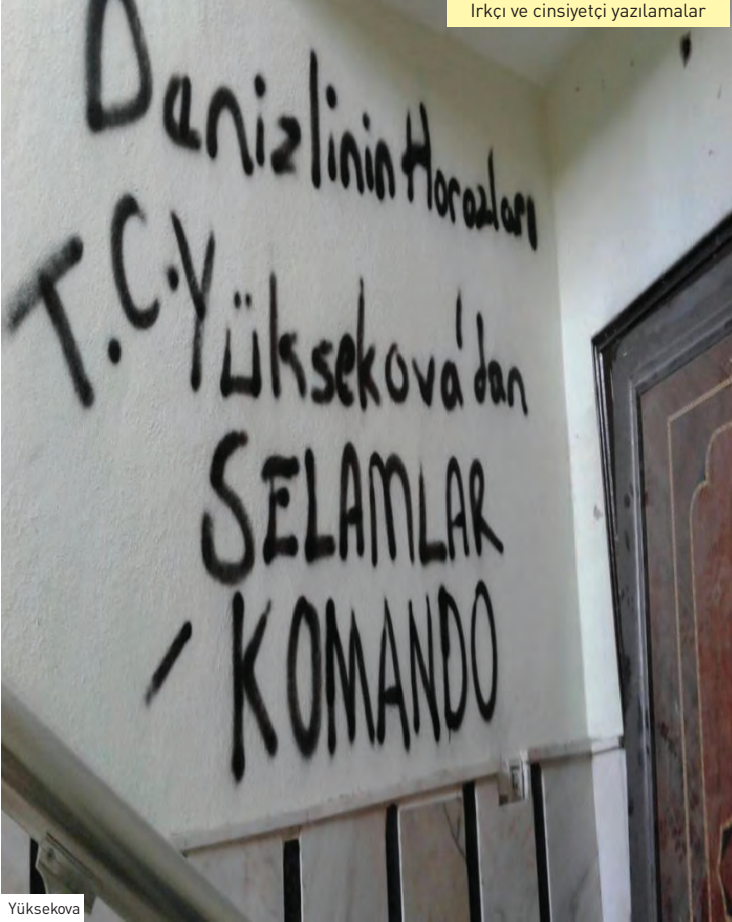 Irkçı ve cinsiyetçi yazılamalar
Denizlinin Horozları
T.C. Yüksekova'dan
SELAMLAR
- KOMANDO
Yüksekova